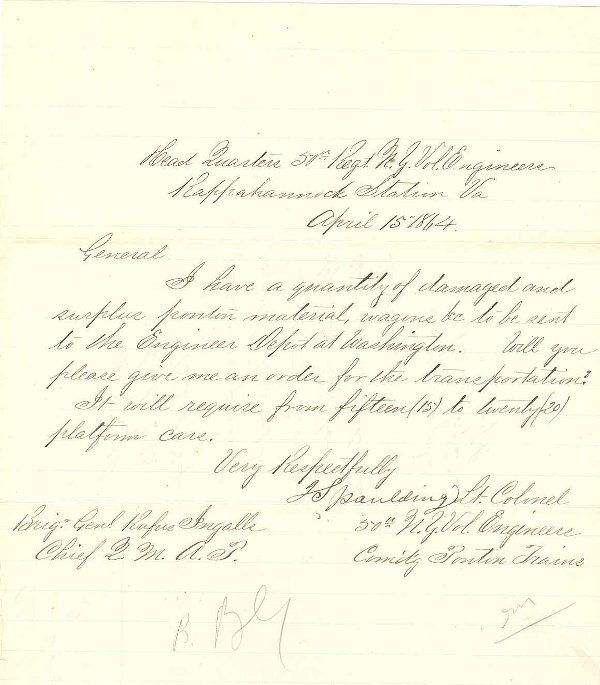 Head Quarters 50th Regt. N.Y. Vol. Engineers
Rappahannock Station Va
April 15 1864.
General
I have a quantity of damaged and
surplus ponton material, wagons &c to be sent
to the Engineer Depot at Washington. Will you
please give me an order for the transportation?
It will require from fifteen (15) to twenty (20)
platform cars.
Very Respectfully
I Spaulding Lt. Colonel
Brigr Genl Rufus Ingalls 50th N.Y. Vol. Engineers
Chief Q. M. A. P. Comdg Ponton Trains